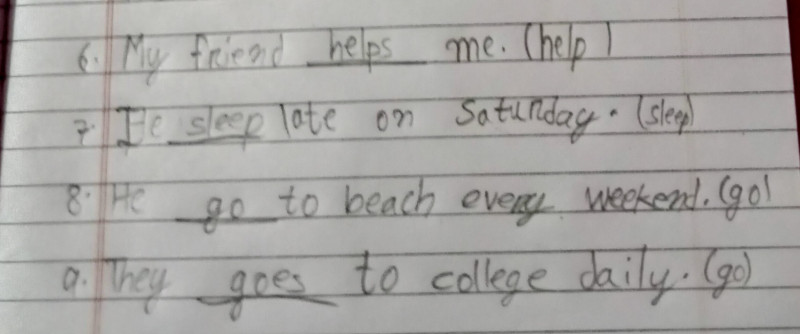 6. My friend helps me. (help)
7. He sleep late on Saturday. (sleep)
8. He go to beach every weekend. (go)
9. They goes to college daily. (go)